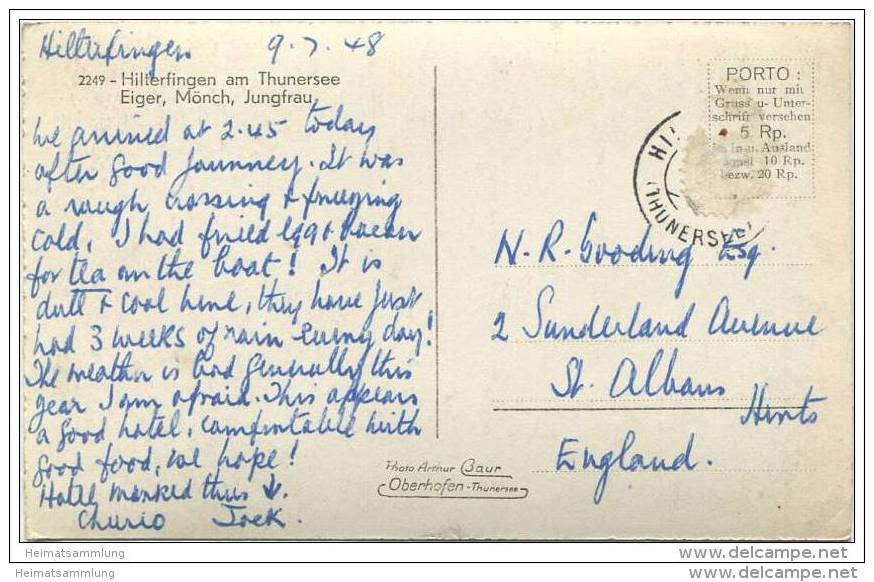 Hilterfingen 9.7.48
2249 - Hilterfingen am Thunersee
Eiger, Mönch, Jungfrau
We arrived at 2.45 today
after good journey. It was
a rough crossing & freezing
cold, I had fried egg & bacon
for tea on the boat! It is
dull & cool here, they have just
had 3 weeks of rain every day!
The weather is bad generally this
year I am afraid. This appears
a good hotel, comfortable with
good food, we hope!
Hotel marked thus ↓.
Cheerio Jack.
PORTO:
Wenn nur mit
Gruss u- Unter-
schrift versehen
5 Rp.
im Inn. Ausland
sonst 10 Rp.
bezw. 20 Rp.
HI
(THUNERSEE)
N. R. Gooding Esq.
2 Sunderland Avenue
St. Albans
Herts
England.
Photo Arthur Baur
Oberhofen - Thunersee
Heimatsammlung
Heimatsammlung
www.delcampe.net
www.delcampe.net